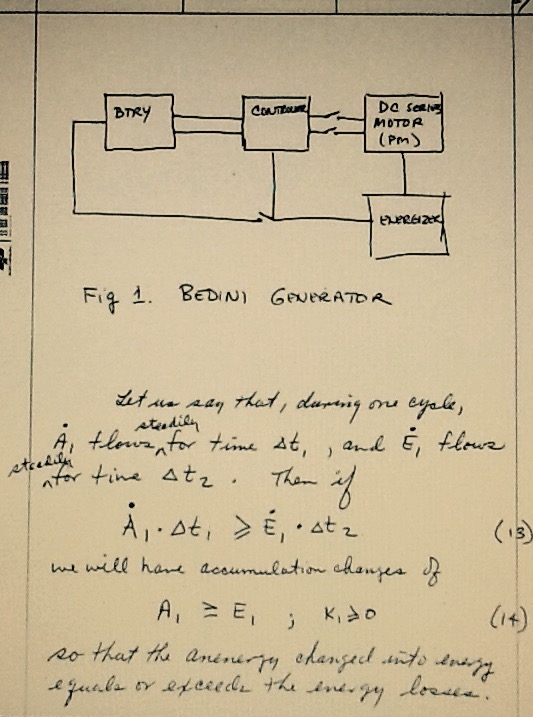 BTRY
CONTROLLER
DC SERIES
MOTOR
(PM)
ENERGIZER
Fig 1. BEDINI GENERATOR
Let us say that, during one cycle,
Ȧ₁ flows steadily for time Δt₁, and Ė₁ flows
steadily for time Δt₂. Then if
Ȧ₁·Δt₁ ⩾ Ė₁·Δt₂ (13)
we will have accumulation changes of
A₁ ≥ E₁ ; K₁⩾0 (14)
so that the anenergy changed into energy
equals or exceeds the energy losses.